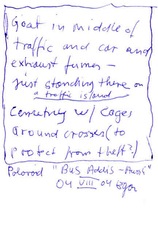 Goat in middle of
traffic and car and
exhaust fumes –
just standing there on
a traffic island
Cemetery w/ Cages
around crosses (to
protect from theft?)
Polaroid "Bus Addis –
04 VIII 04